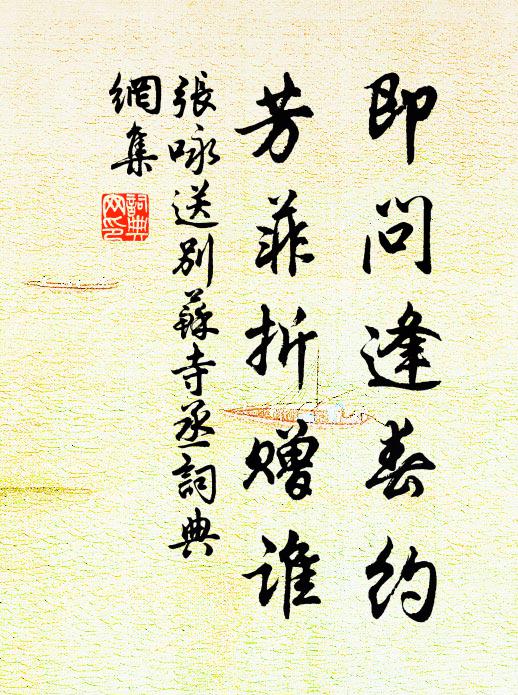 即问逢春约
芳菲折赠谁
張咏送别蘇寺丞詞典
網集
詞典
网印